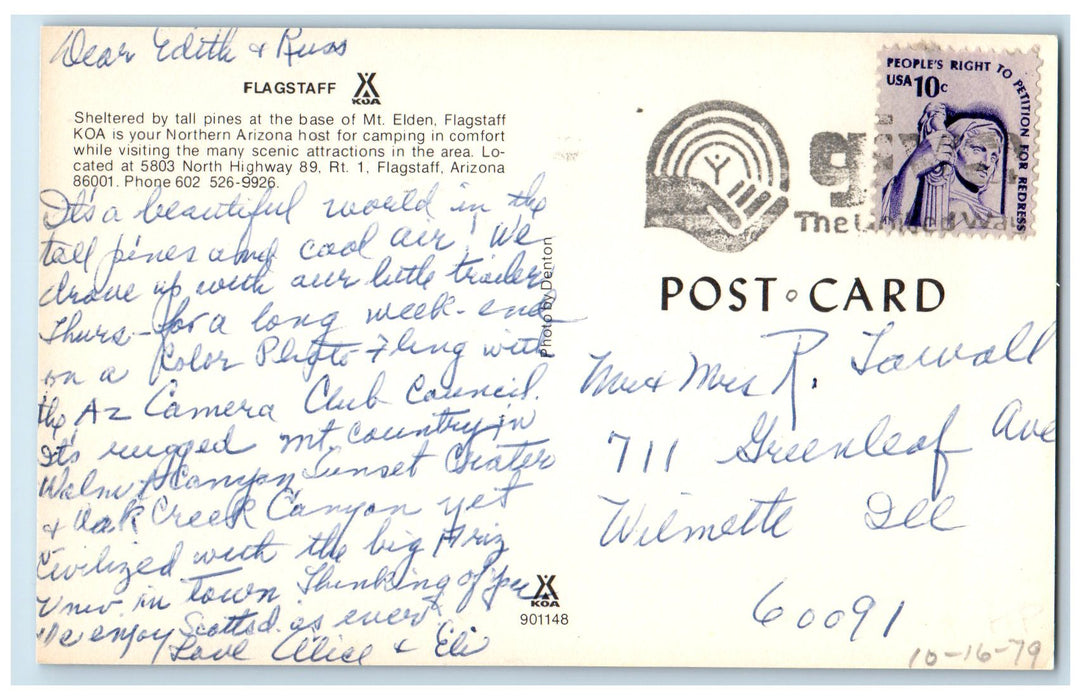 Dear Edith & Russ
FLAGSTAFF KOA
Sheltered by tall pines at the base of Mt. Elden, Flagstaff
KOA is your Northern Arizona host for camping in comfort
while visiting the many scenic attractions in the area. Lo-
cated at 5803 North Highway 89, Rt. 1, Flagstaff, Arizona
86001. Phone 602 526-9926.
It's a beautiful world in the
tall pines and cool air! We
drove up with our little trailer
Thurs - for a long week-end
on a Color Photo-Fling with
the Az Camera Club Council.
It's rugged mt. country in
Walnut Canyon Sunset Crater
& Oak Creek Canyon yet
Civilized with the big Ariz
Univ in town Thinking of you
We enjoy Scottsd. as ever
Love Alice & Eli
Photo by Denton
KOA
901148
PEOPLE'S RIGHT TO PETITION FOR REDRESS
USA 10c
The United Way
POST CARD
Mr & Mrs R. Tarvall
711 Greenleaf Ave
Wilmette Ill
60091
10-16-79